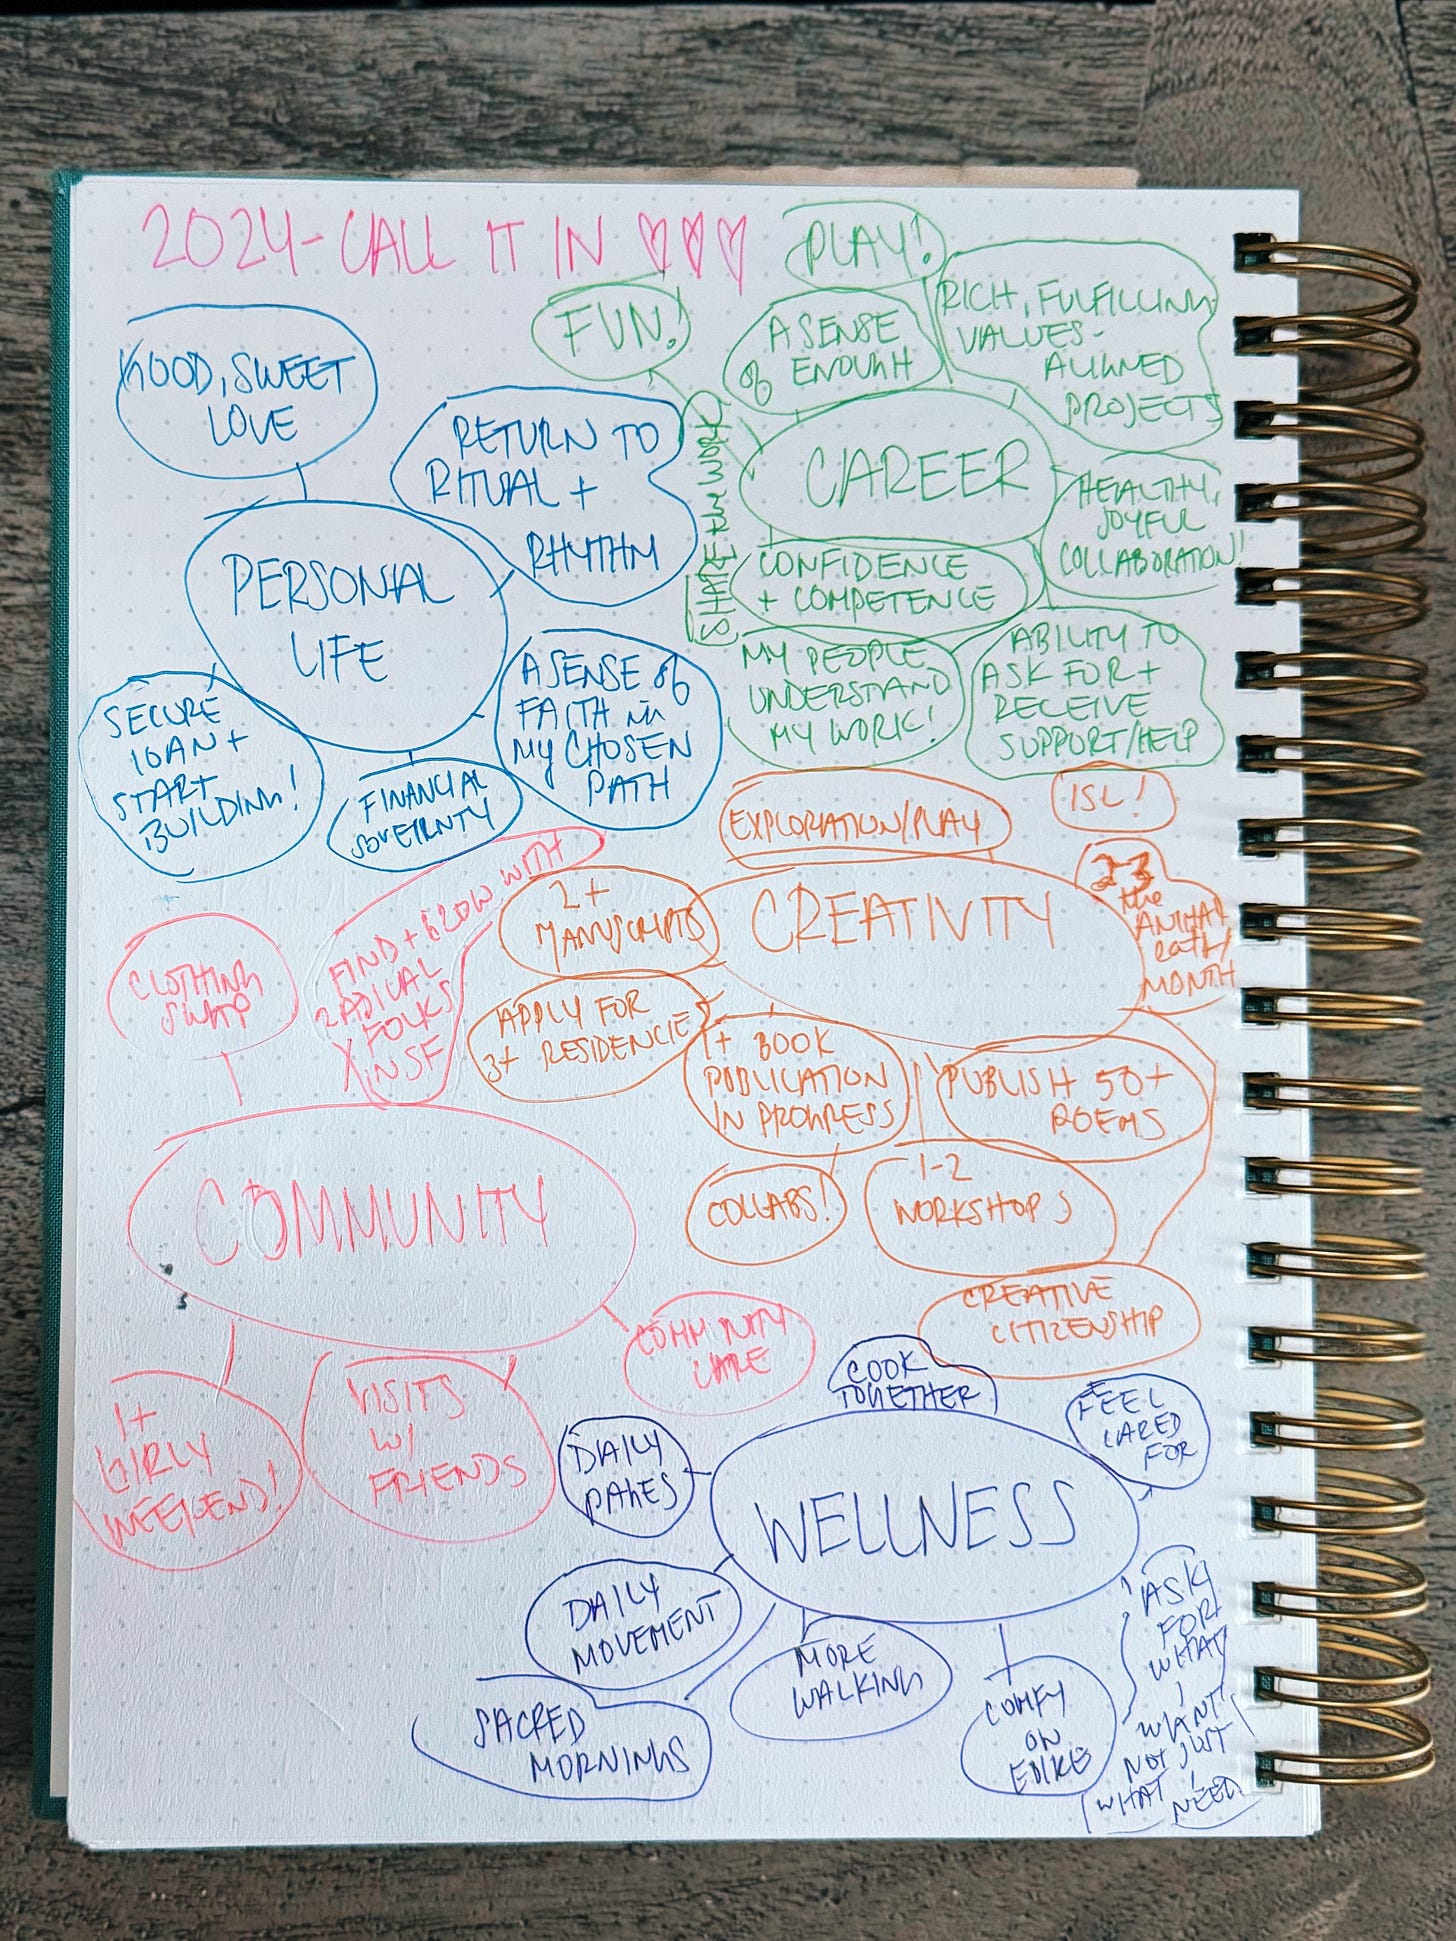 2024-CALL IT IN
GOOD, SWEET
LOVE
RETURN TO
RITUAL +
RHYTHM
PERSONAL
LIFE
SECURE
LOAN +
START
BUILDING!
FINANCIAL
SOVERNTY
A SENSE of
FAITH in
MY CHOSEN
PATH
PLAY!
FUN!
A SENSE
of ENOUGH
RICH, FULFILLING
VALUES-
ALIGNED
PROJECTS
SHARE the WORK
CAREER
HEALTHY,
JOYFUL
COLLABORATION!
CONFIDENCE
+ COMPETENCE
MY PEOPLE
UNDERSTAND
MY WORK!
ABILITY TO
ASK FOR +
RECEIVE
SUPPORT/HELP
EXPLORATION/PLAY
ISL!
2+
MANUSCRIPTS
CREATIVITY
2-3
the
ANIMAL
EATS/
MONTH
APPLY FOR
3+ RESIDENCIES
1+ BOOK
PUBLICATION
IN PROGRESS
PUBLISH 50+
POEMS
COLLABS!
1-2
WORKSHOPS
CREATIVE
CITIZENSHIP
CLOTHING
SWAP
FIND + GROW WITH
RADICAL
FOLKS
in NSF
COMMUNITY
COMMUNITY
CARE
1+
GIRLY
WEEKEND!
VISITS
W/
FRIENDS
COOK
TOGETHER
FEEL
CARED
FOR
DAILY
PAGES
WELLNESS
DAILY
MOVEMENT
SACRED
MORNINGS
MORE
WALKING
COMFY
ON
EBIKE
ASK
FOR
WHAT
I
WANT
NOT JUST
WHAT I
NEED